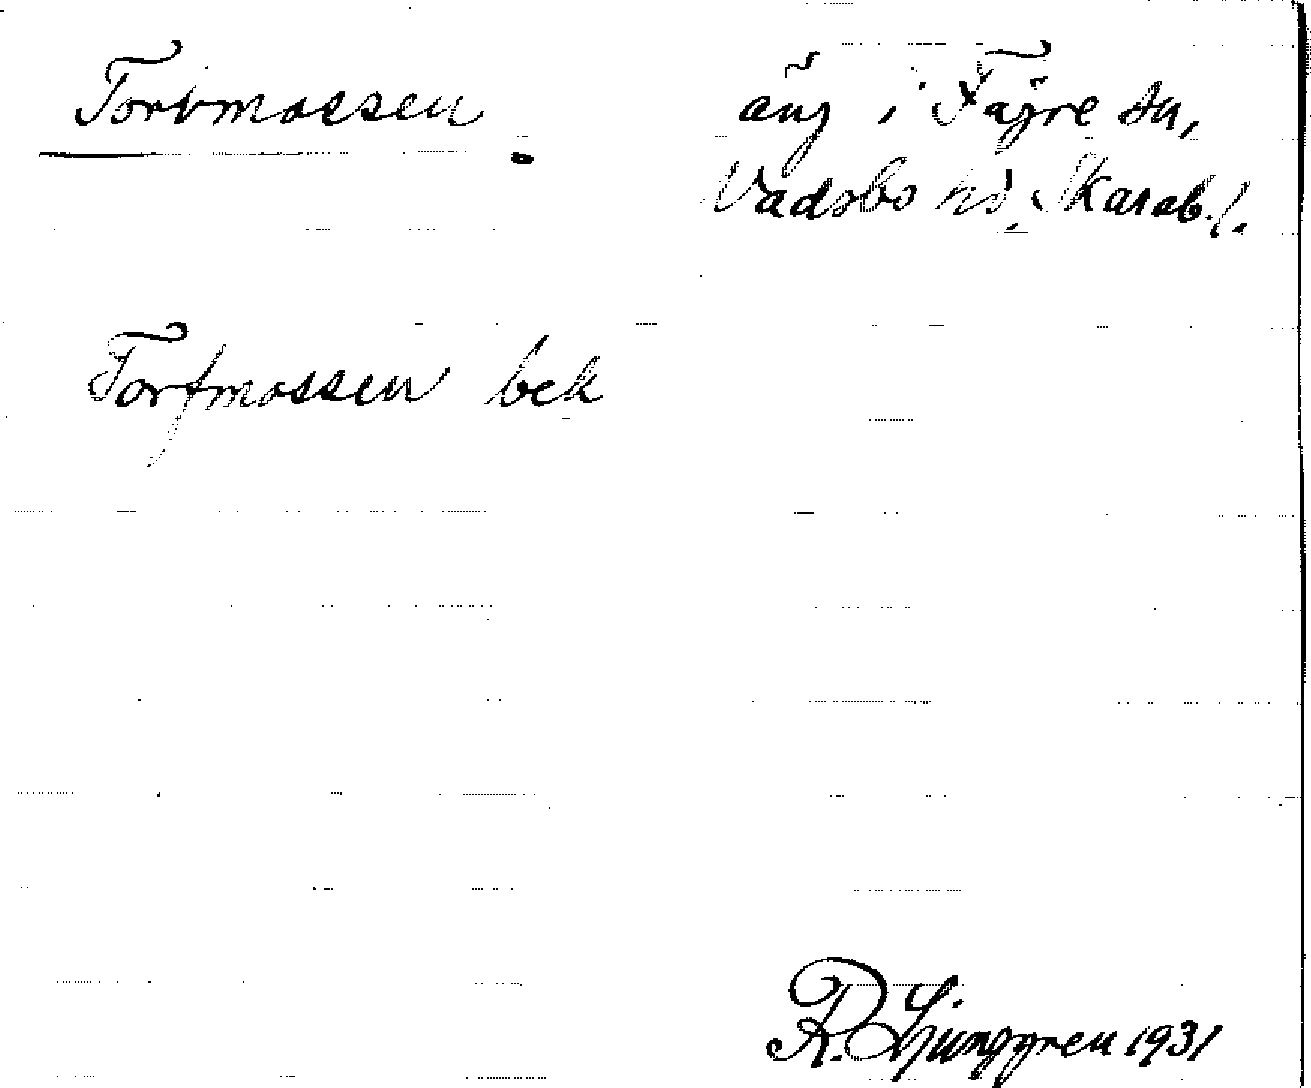 Torvmossen
äng i Fägre sn,
Vadsbo hd. Skarab. l.
Torfmossen bek
R. Ljunggren 1931